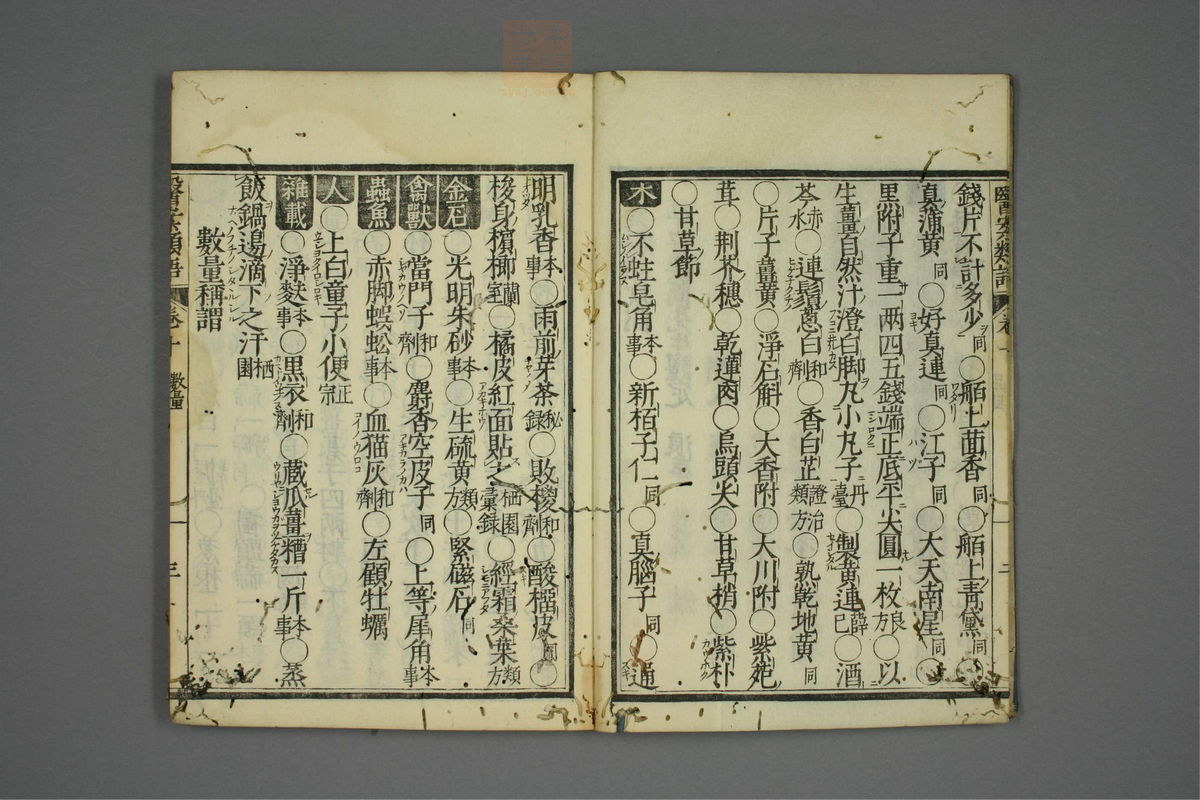 錢片不計多少同○舶上茴香同○舶上靑黛同○
真蒲黄同○好真連同○江子同○大天南星同○
黒附子重一兩四五錢端正底平尖圓一枚良方○以
生薑自然汁澄白脚丸小丸子丹臺○製黄連已○酒
芩赤水○連鬚葱白和劑○香白芷證治類方○熟乾地黄同
○片子薑黄○淨石斛○大香附○大川附○紫菀
茸○荆芥穂○乾蓮肉○烏頭尖○甘草梢○紫朴
○甘草節
木○不蛀皂角本事○新栢子仁同○真腦子同○通
明乳香本事○雨前芽茶秘録○敗椶和劑○酸榴皮同○
梭身檳榔蘭室○橘皮紅面貼之栖園彙録○經霜桑葉類方
金石○光明朱砂本事○生硫黄類方○緊磁石同
禽獸○當門子和劑○麝香空皮子同○上等犀角本事
蟲魚○赤脚蜈蚣本事○血猫灰和劑○左顧牡蠣
人○上白童子小便正宗
雜載○淨麩本事○黒衣和劑○藏瓜薑糟一斤本事○蒸
飯鍋邊滴下之汗栖園
數量稱謂